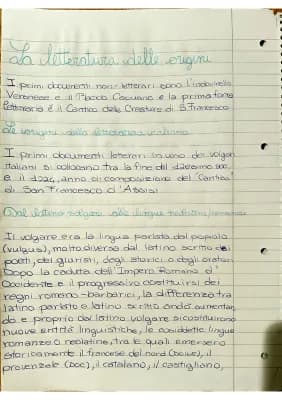 La letteratura delle origini
I primi documenti non letterari sono l'indovinello
Veronese e il Placito Capuano e la prima fonte
letteraria è il Cantico delle Creature di S. Francesco
Le origini della letteratura italiana
I primi documenti letterari in uno dei volgari
italiani si collocano tra la fine del dodicesimo sec.
e il 1224, anno di composizione del "Cantico"
di San Francesco d'Assisi
Dal latino volgare alle lingue
Il volgare era la lingua parlata dal popolo
(vulgus), molto diversa dal latino scritto dei
poeti, dei giuristi, degli storici o degli oratori.
Dopo la caduta dell'Impero Romano d'
Occidente e il progressivo costituirsi dei
regni romano-barbarici, la differenza tra
latino parlato e latino scritto andò aumentan
do e proprio dal latino volgare si costituirono
nuove entità linguistiche, le cosiddette lingue
romanze o neolatine, tra le quali emersero
storicamente il francese del nord (            ), il
provenzale (Doc), il catalano, il castigliano,